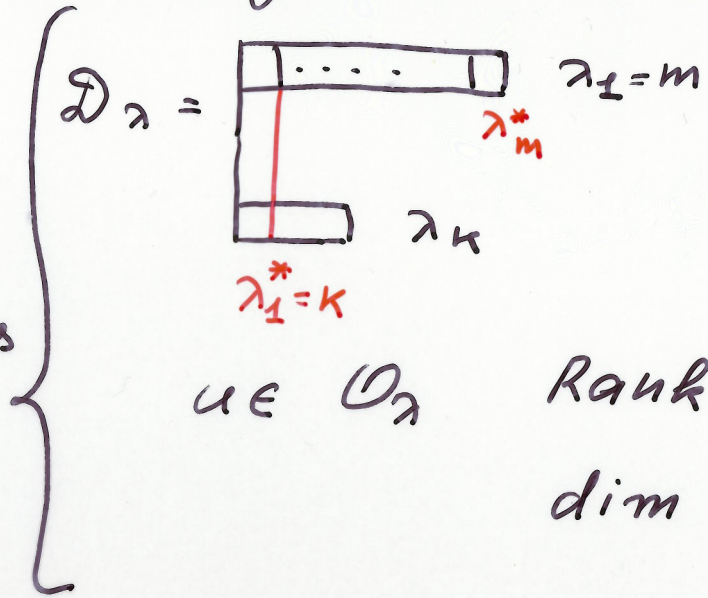 𝒟λ = .... λ1 = m
λ*m
λk
λ*1 = k
s
u ∈ 𝒪λ Rank
dim